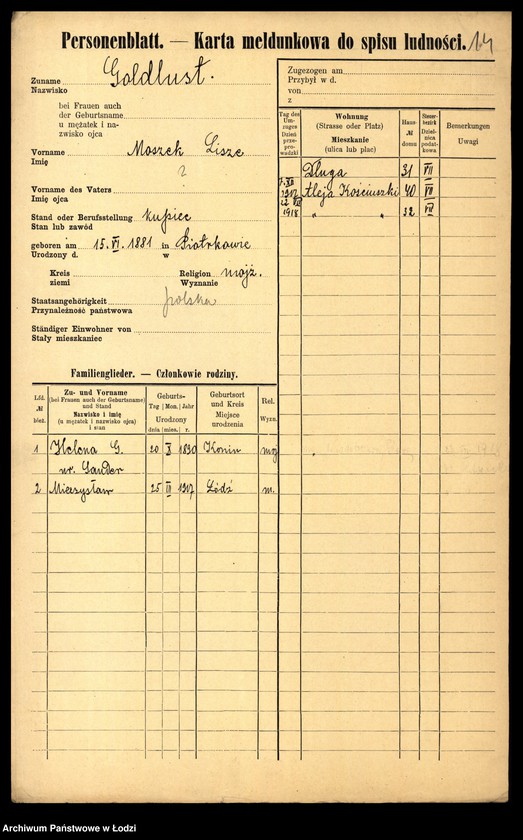 Personenblatt. — Karta meldunkowa do spisu ludności. 14
Zuname Goldlust.
Nazwisko
bei Frauen auch
der Geburtsname
u mężatek i na-
zwisko ojca
Vorname Moszek Lisze
Imię
?
Vorname des Vaters
Imię ojca
Stand oder Berufsstellung kupiec
Stan lub zawód
geboren am 15. VI. 1881 in Piotrkowie
Urodzony d. w
Kreis Religion mojż.
ziemi Wyznanie
Staatsangehörigkeit polska
Przynależność państwowa
Ständiger Einwohner von
Stały mieszkaniec
Familienglieder. — Członkowie rodziny.
Lfd. № bież.
Zu- und Vorname
(bei Frauen auch der Geburtsname)
und Stand
Nazwisko i imię
(u mężatek i nazwisko ojca)
i stan
Geburts-
Tag Mon. Jahr
Urodzony
dnia mies. r.
Geburtsort
und Kreis
Miejsce
urodzenia
Rel.
Wyzn.
1 Helena G. 20 X 1890 Konin moj
ur. Sander
2 Mieczysław 25 III 1917 Łódź m.
Zugezogen am
Przybył w d.
von
z
Tag des
Um-
zuges
Dzień
prze-
prowadzki
Wohnung
(Strasse oder Platz)
Mieszkanie
(ulica lub plac)
Haus-
№
domu
Steuer-
bezirk
Dziel-
nica
podat-
kowa.
Bemerkungen
Uwagi
Długa 31 VII
7. XII
1917 Aleja Kościuszki 40 VII
22 VII
1918 " " 32 VII
Archiwum Państwowe w Łodzi